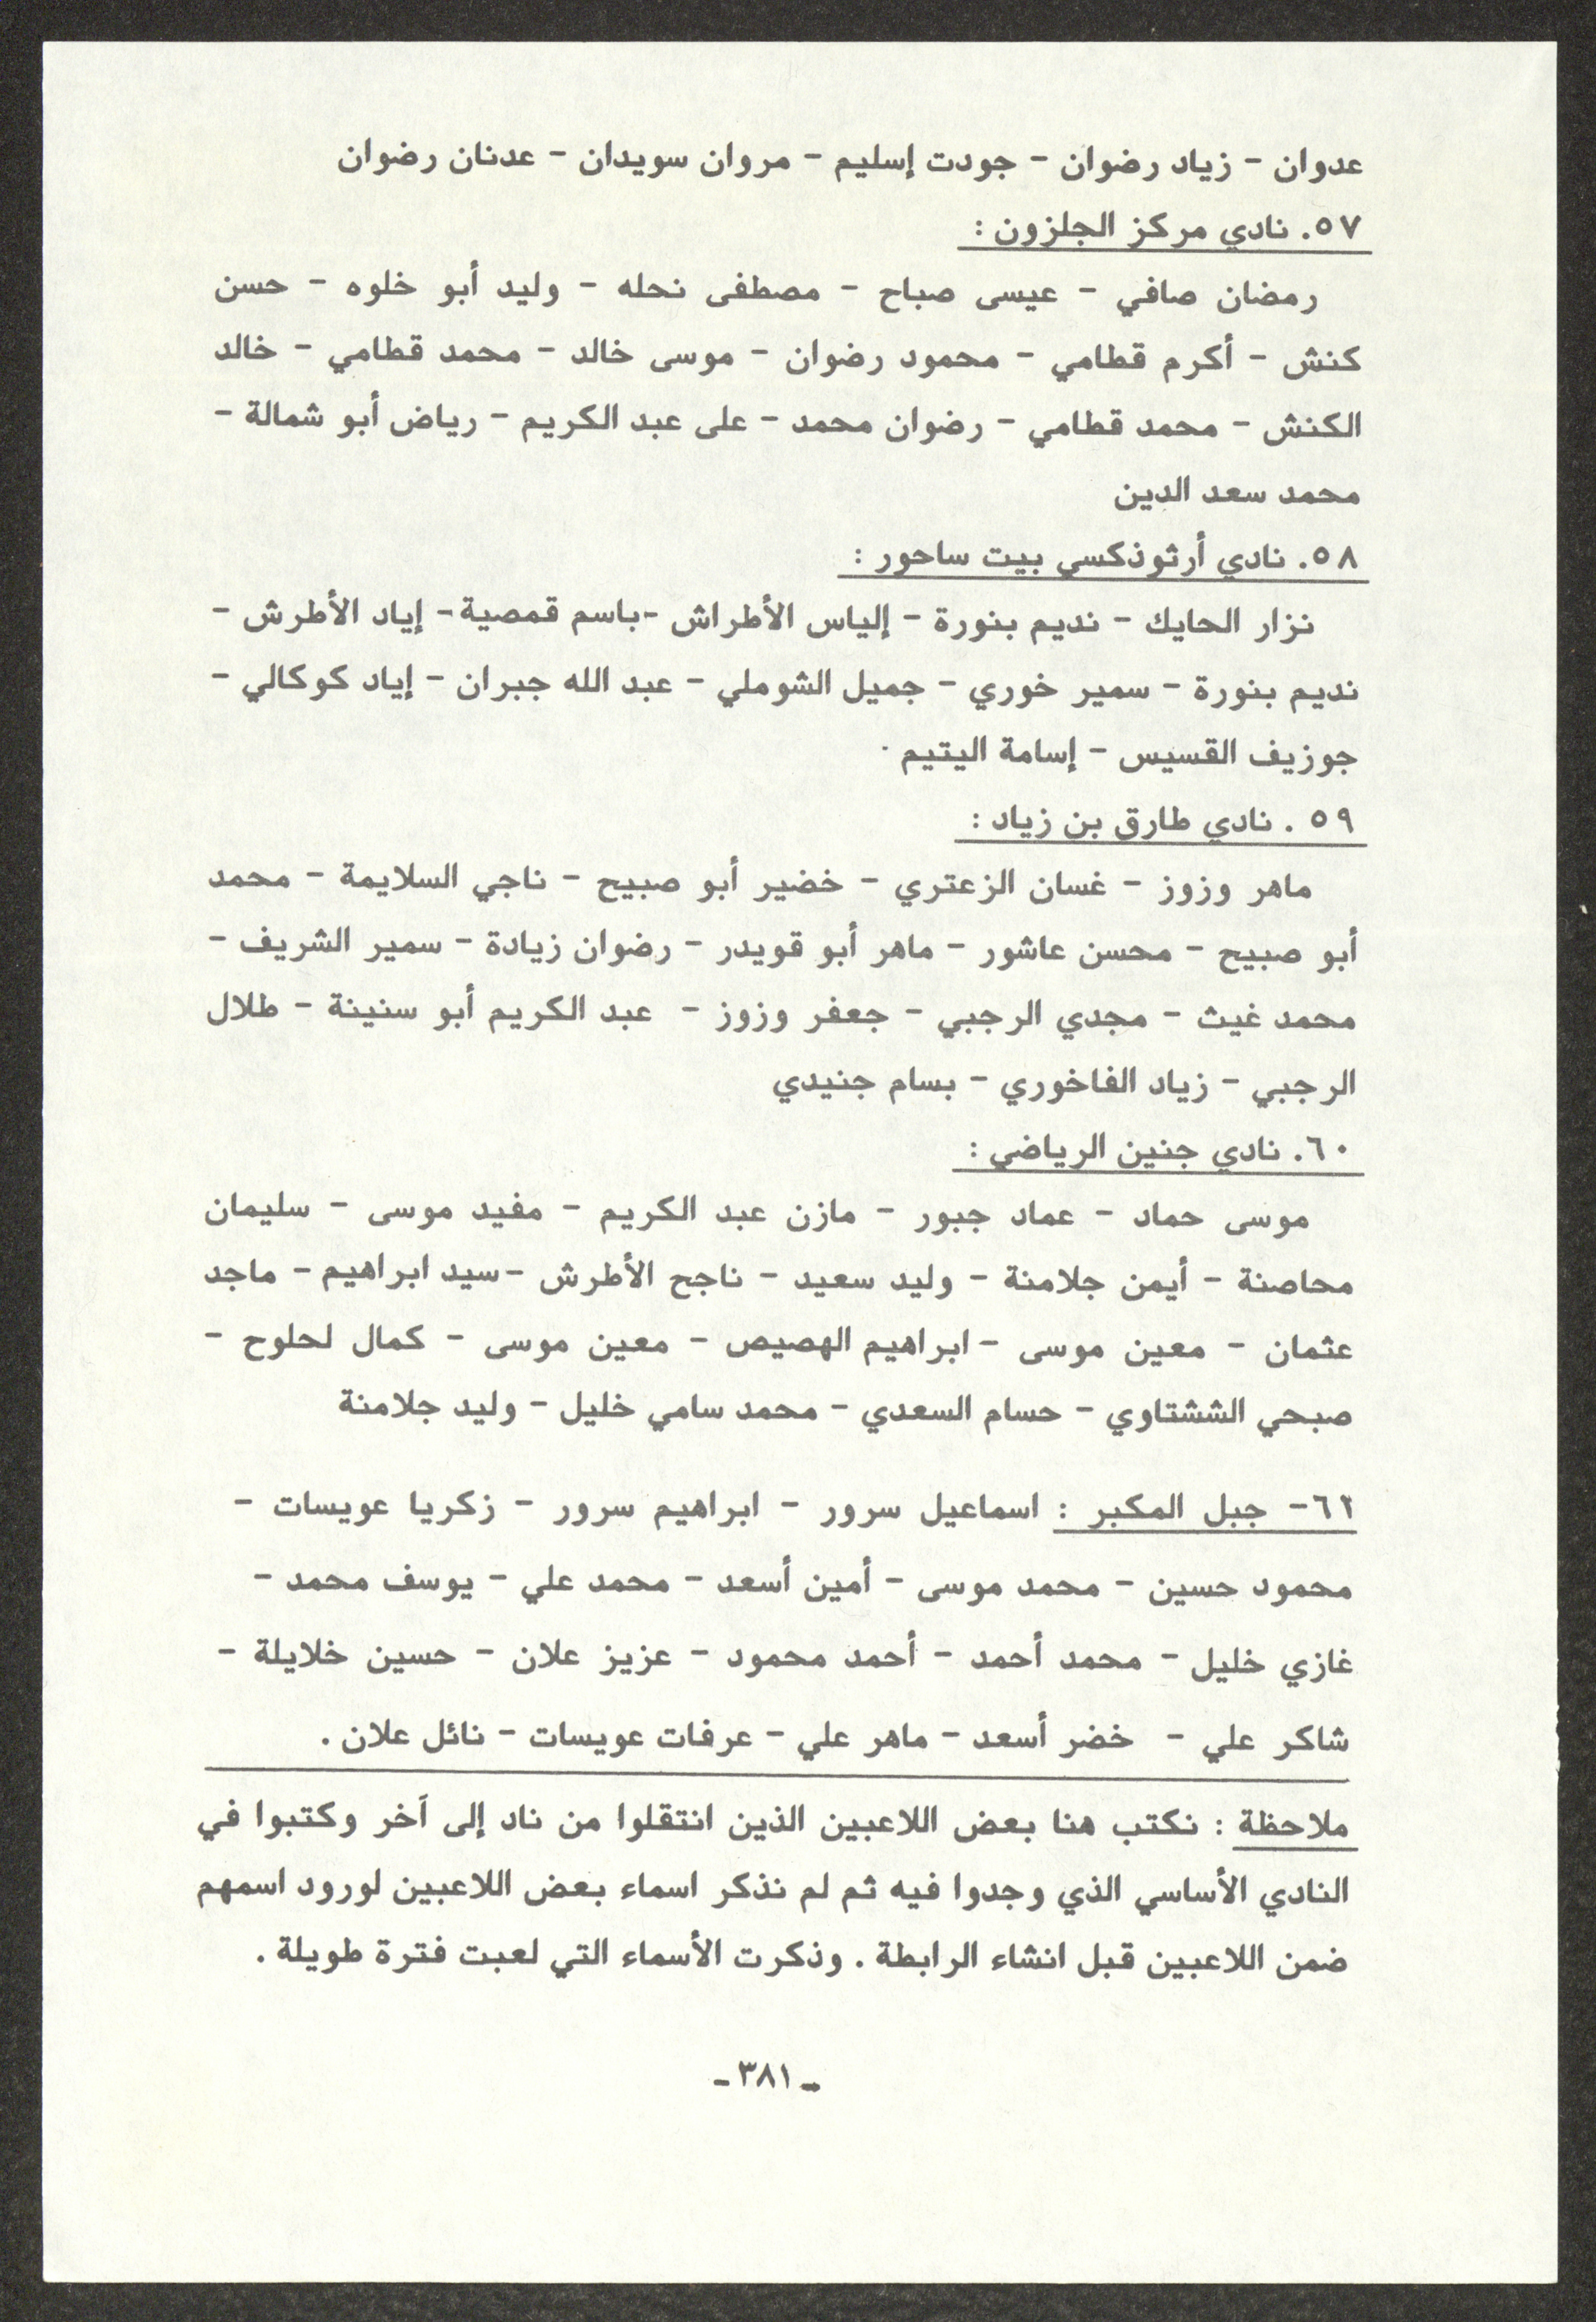 عدوان – زياد رضوان – جودت إسليم – مروان سويدان – عدنان رضوان
٥٧. نادي مركز الجلزون :
رمضان صافي – عيسى صباح – مصطفى نحله – وليد أبو خلوه – حسن
كنش – أكرم قطامي – محمود رضوان – موسى خالد – محمد قطامي – خالد
الكنش – محمد قطامي – رضوان محمد – على عبد الكريم – رياض أبو شمالة –
محمد سعد الدين
٥٨. نادي أرثوذكسي بيت ساحور :
نزار الحايك – نديم بنورة – إلياس الأطراش -باسم قمصية- إياد الأطرش –
نديم بنورة – سمير خوري – جميل الشوملي – عبد الله جبران – إياد كوكالي –
جوزيف القسيس – إسامة اليتيم .
٥٩ . نادي طارق بن زياد :
ماهر وزوز – غسان الزعتري – خضير أبو صبيح – ناجي السلايمة – محمد
أبو صبيح – محسن عاشور – ماهر أبو قويدر – رضوان زيادة – سمير الشريف –
محمد غيث – مجدي الرجبي – جعفر وزوز – عبد الكريم أبو سنينة – طلال
الرجبي – زياد الفاخوري – بسام جنيدي
٦٠. نادي جنين الرياضي :
موسى حماد – عماد جبور – مازن عبد الكريم – مفيد موسى – سليمان
محاصنة – أيمن جلامنة – وليد سعيد – ناجح الأطرش –سيد ابراهيم – ماجد
عثمان – معين موسى –ابراهيم الهصيص – معين موسى – كمال لحلوح –
صبحي الششتاوي – حسام السعدي – محمد سامي خليل – وليد جلامنة
٦١– جبل المكبر : اسماعيل سرور – ابراهيم سرور – زكريا عويسات –
محمود حسين – محمد موسى – أمين أسعد – محمد علي – يوسف محمد –
غازي خليل – محمد أحمد – أحمد محمود – عزيز علان – حسين خلايلة –
شاكر علي – خضر أسعد – ماهر علي – عرفات عويسات – نائل علان .
ملاحظة : نكتب هنا بعض اللاعبين الذين انتقلوا من ناد إلى آخر وكتبوا في
النادي الأساسي الذي وجدوا فيه ثم لم نذكر اسماء بعض اللاعبين لورود اسمهم
ضمن اللاعبين قبل انشاء الرابطة . وذكرت الأسماء التي لعبت فترة طويلة .
-٣٨١-